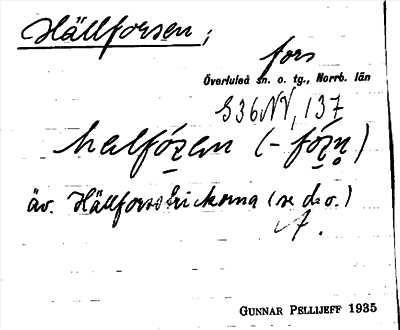 Hällforsen;
fors
Överluleå sn. o. tg., Norrb. län
S36NV, 137
halfózan (-fózn)
äv. Hällforsstrickorna (se d.o.)
GUNNAR PELLIJEFF 1935